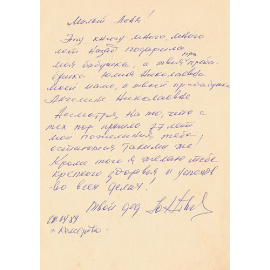 Милый Лёня!
Эту книгу много много
лет назад подарила
моя бабушка, а твоя пра пра-
бабушка Юлия Николаевна
моей маме, а твоей прабабушке
Николаевне
Несмотря, на то, что с
тех пор прошло 77 лет
мои пожелания тебе,
остаются такими же
Кроме того я желаю тебе
крепкого здоровья и успехов
во всех делах!
Твой дед